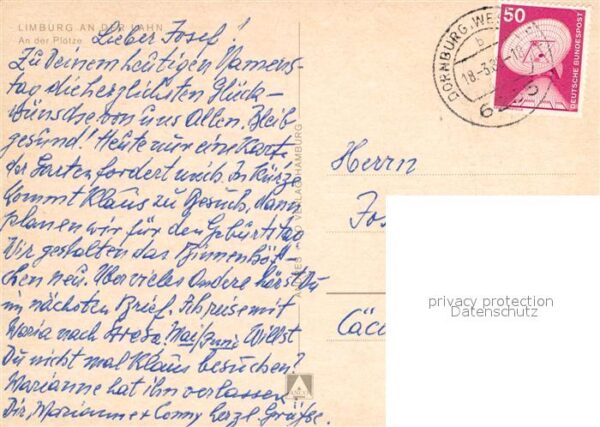 LIMBURG AN DER LAHN
An der Plötze
Lieber Josef!
Zu Deinem heutigen Namens-
tag die herzlichsten Glück-
wünsche von uns Allen. Bleib
gesund! Heute nur eine Karte
der Garten fordert mich. In Kürze
kommt Klaus zu Besuch, dann
planen wir für den Geburtstag
Wir gestalten das Binnenhöf-
chen neu. Über vieles Andere hörst Du
im nächsten Brief. Ich reise mit
Maria nach Mai/Juni Willst
Du nicht mal Klaus besuchen?
Marianne hat ihn verlassen
Dir, Marianne + Conny herzl. Grüße.
VERLAG HAMBURG
DORNBURG, WES
b
18-3
50
DEUTSCHE BUNDESPOST
Herrn
Jos
Cäc
privacy protection
Datenschutz